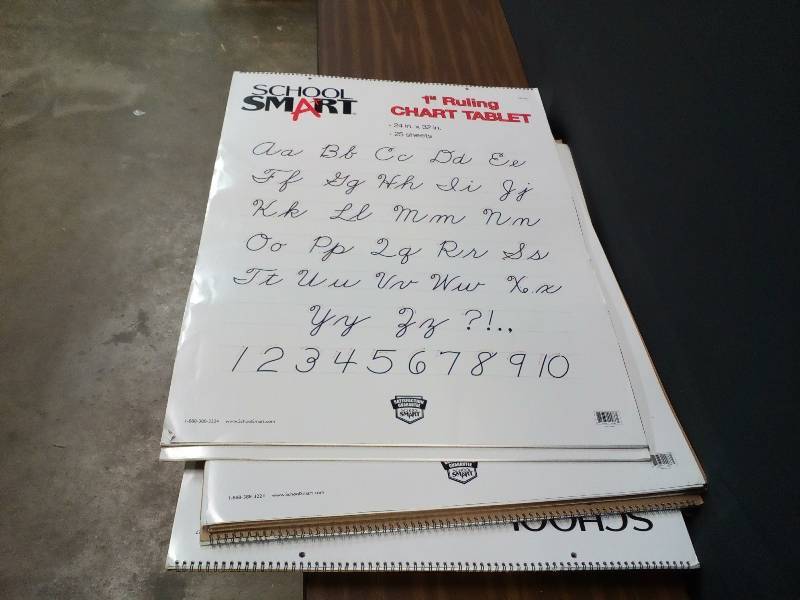 SCHOOL
SMART
1" Ruling
CHART TABLET
- 24 in. x 32 in.
- 25 sheets
Aa Bb Cc Dd Ee
Ff Gg Hh Ii Jj
Kk Ll Mm Nn
Oo Pp Qq Rr Ss
Tt Uu Vv Ww Xx
Yy Zz ?!.,
1 2 3 4 5 6 7 8 9 10
SATISFACTION
GUARANTEE
SMART
1-888-388-3224 www.SchoolSmart.com
GUARANTEE
SMART
1-888-388-3224 www.SchoolSmart.com
SCHOOL